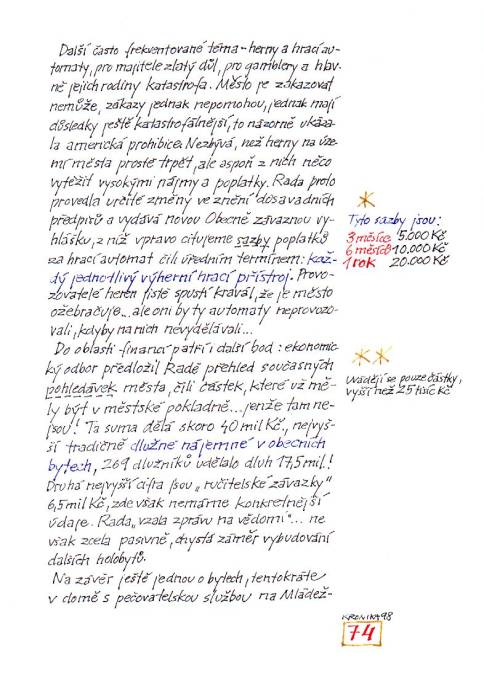 Další často frekventované téma - herny a hrací au-
tomaty, pro majitele zlatý důl, pro gamblery a hlav-
ně jejich rodiny katastrofa. Město je zakazovat
nemůže, zákazy jednak nepomohou, jednak mají
důsledky ještě katastrofálnější, to názorně ukáza-
la americká prohibice. Nezbývá, než herny na úze-
mí města prostě trpět, ale aspoň z nich něco
vytěžit vysokými nájmy a poplatky. Rada proto
provedla určité změny ve znění dosavadních
předpisů a vydává novou Obecně závaznou vy-
hlášku, z níž vpravo citujeme sazby poplatků
za hrací automat čili úředním termínem: kaž-
dý jednotlivý výherní hrací přístroj. Provo-
zovatelé heren jistě spustí kravál, že je město
ožebračuje... ale oni by ty automaty neprovozo-
vali, kdyby na nich nevydělávali...
Do oblasti financí patří i další bod: ekonomic-
ký odbor předložil Radě přehled současných
pohledávek města, čili částek, které už mě-
ly být v městské pokladně... jenže tam ne-
jsou! Ta suma dělá skoro 40 mil Kč., nejvyš-
ší tradičně dlužné nájemné v obecních
bytech, 269 dlužníků udělalo dluh 17,5 mil!
Druhá nejvyšší cifra jsou „ručitelské závazky"
6,5 mil Kč, zde však nemáme konkretnější
údaje. Rada „vzala zprávu na vědomí"... ne
však zcela pasivně, chystá záměr vybudování
dalších holobytů.
Na závěr ještě jednou o bytech, tentokráte
v domě s pečovatelskou službou na Mládež-
*
Tyto sazby jsou:
3 měsíce 5.000 Kč
6 měsíců 10.000 Kč
1 rok 20.000 Kč
**
Uvádějí se pouze částky,
vyšší než 25 tisíc Kč
KRONIKA 98
74